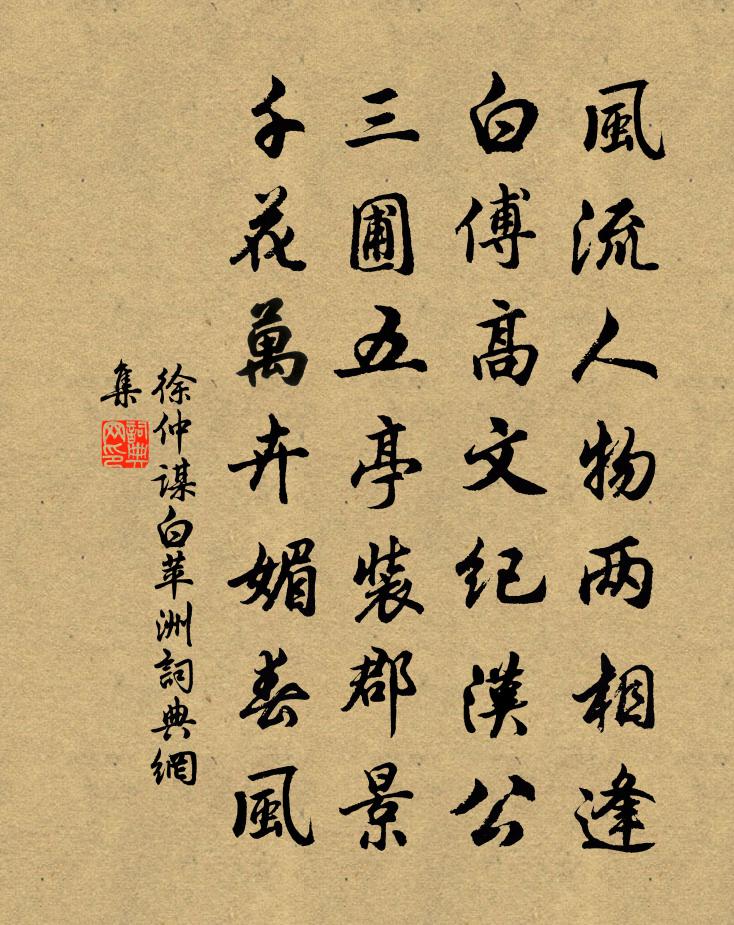 風流人物两相逢
白傅高文纪漢公
三圃五亭裝郡景
千花萬卉媚春風
徐仲謀白苹洲詞典網
集
詞典
网印